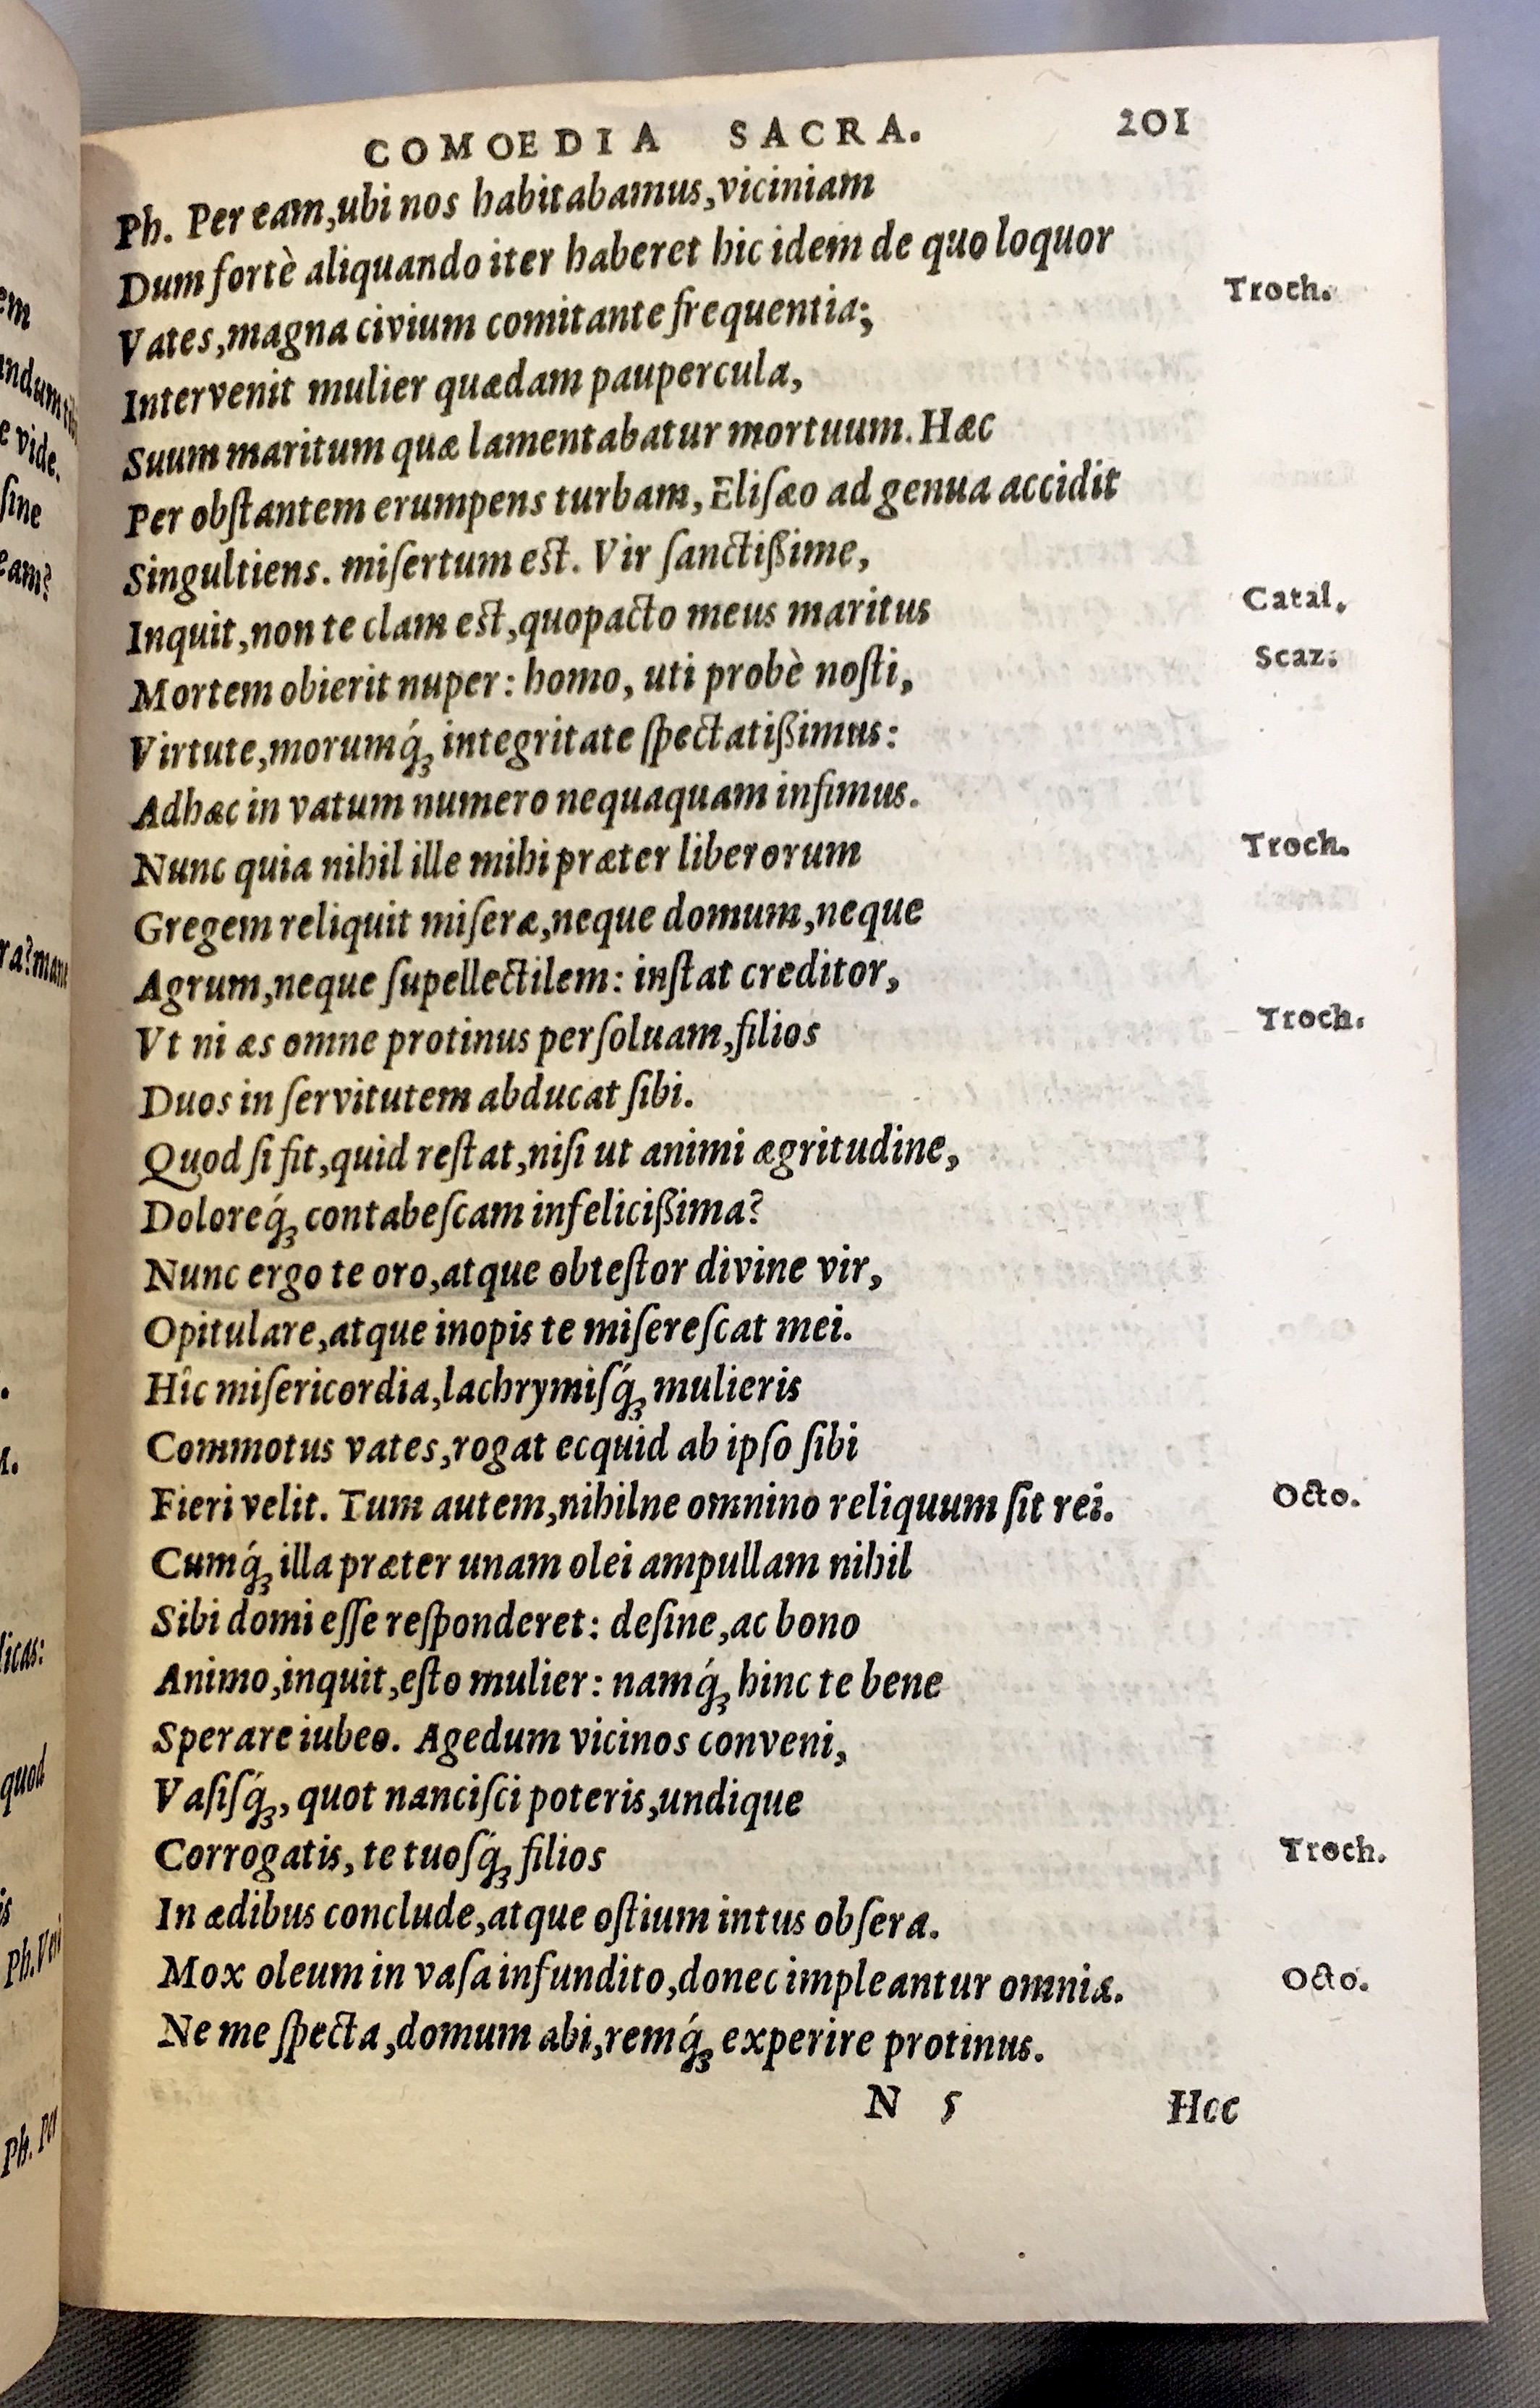 COMOEDIA SACRA. 201
Ph. Per eam,ubi nos habitabamus,viciniam
Dum fortè aliquando iter haberet hic idem de quo loquor
Vates,magna civium comitante frequentia; Troch.
Intervenit mulier quædam paupercula,
Suum maritum quæ lamentabatur mortuum. Hæc
Per obſtantem erumpens turbam, Eliſæo ad genua accidit
Singultiens. miſertum eſt. Vir ſanctißime,
Inquit,non te clam eſt,quopacto meus maritus Catal.
Mortem obierit nuper: homo, uti probè noſti, Scaz.
Virtute,morumq́; integritate ſpectatißimus:
Adhæc in vatum numero nequaquam infimus.
Nunc quia nihil ille mihi præter liberorum Troch.
Gregem reliquit miſeræ,neque domum,neque
Agrum,neque ſupellectilem: inſtat creditor,
Vt ni æs omne protinus perſoluam,filios Troch.
Duos in ſervitutem abducat ſibi.
Quod ſi fit,quid reſtat,niſi ut animi ægritudine,
Doloreq́; contabeſcam infelicißima?
Nunc ergo te oro,atque obteſtor divine vir,
Opitulare,atque inopis te miſereſcat mei.
Hîc miſericordia,lachrymiſq́; mulieris
Commotus vates,rogat ecquid ab ipſo ſibi
Fieri velit. Tum autem,nihilne omnino reliquum ſit rei. Octo.
Cumq́; illa præter unam olei ampullam nihil
Sibi domi eſſe reſponderet: deſine,ac bono
Animo,inquit,eſto mulier: namq́; hinc te bene
Sperare iubeo. Agedum vicinos conveni,
Vaſiſq́;, quot nanciſci poteris,undique
Corrogatis, te tuoſq́; filios Troch.
In ædibus conclude,atque oſtium intus obſera.
Mox oleum in vaſa infundito,donec impleantur omnia. Octo.
Ne me ſpecta,domum abi,remq́; experire protinus.
N 5 Hoc